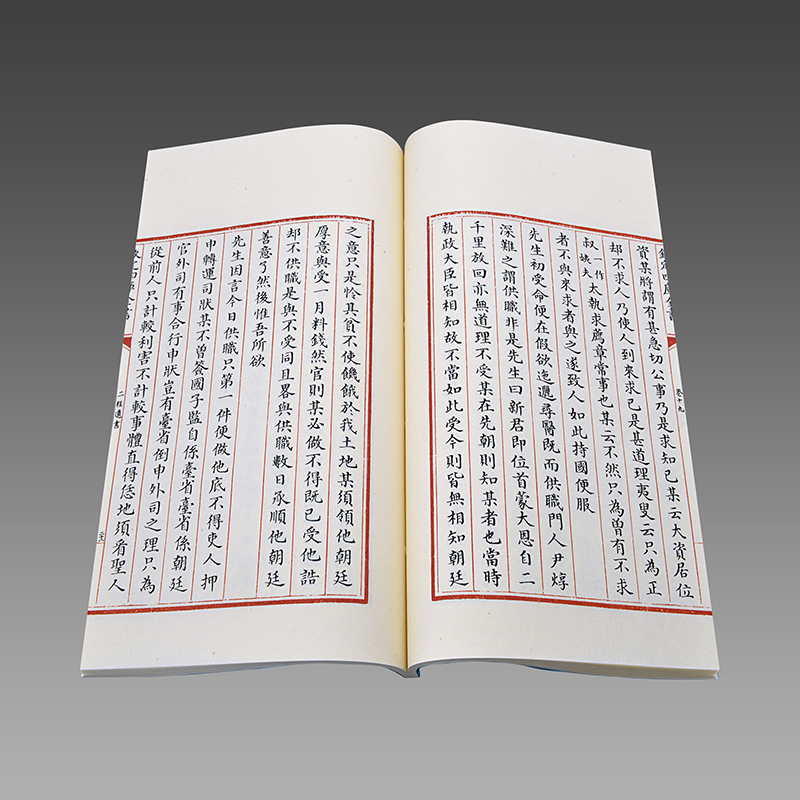 欽定四庫全書
卷十九
資某將謂有甚急切公事乃是求知己某云大資居位
却不求人乃使人到來求己是甚道理夷叟云只為正
叔一作姨夫太執求薦章常事也某云不然只為曾有不求
者不與來求者與之遂致人如此持國便服
先生初受命便在假欲迤邐尋醫既而供職門人尹焞
深難之謂供職非是先生曰新君即位首蒙大恩自二
千里放回亦無道理不受某在先朝則知某者也當時
執政大臣皆相知故不當如此受今則皆無相知朝廷
之意只是怜其貧不使饑餓於我土地某須領他朝廷
厚意與受一月料錢然官則某必做不得既已受他誥
却不供職是與不受同且畧與供職數日承順他朝廷
善意了然後惟吾所欲
先生因言今日供職只第一件便做他底不得吏人押
申轉運司狀某不曾簽國子監自係臺省臺省係朝廷
官外司有事合行申狀豈有臺省倒申外司之理只為
從前人只計較利害不計較事體直得恁地須看聖人
二程遺書